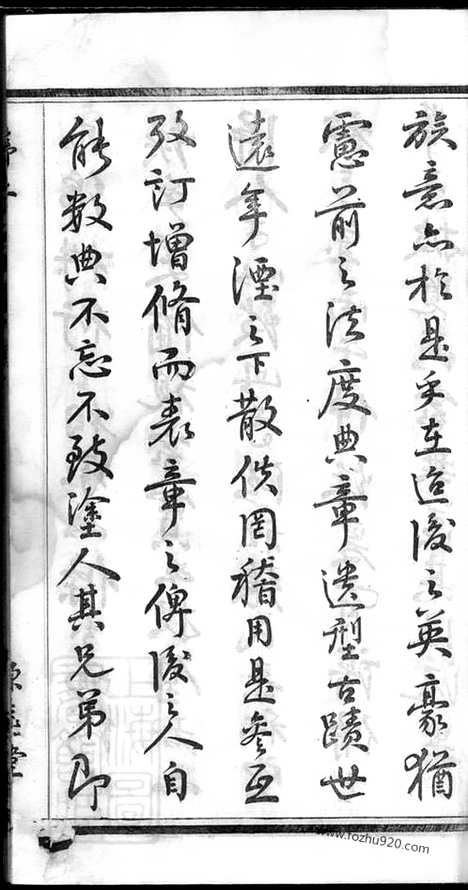 族意亦於是乎在迨後之英豪猶
慮前之法度典章遺型古蹟世
遠年湮之下散佚罔稽用是參互
攷訂增脩而表章之俾後之人自
能數典不忘不致塗人其兄弟即
www.fozhu920.com